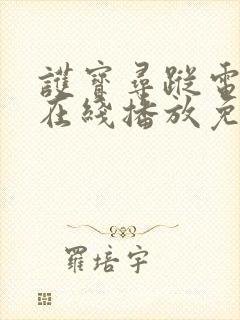 護寶尋蹤電
在綫播放免
羅培宇